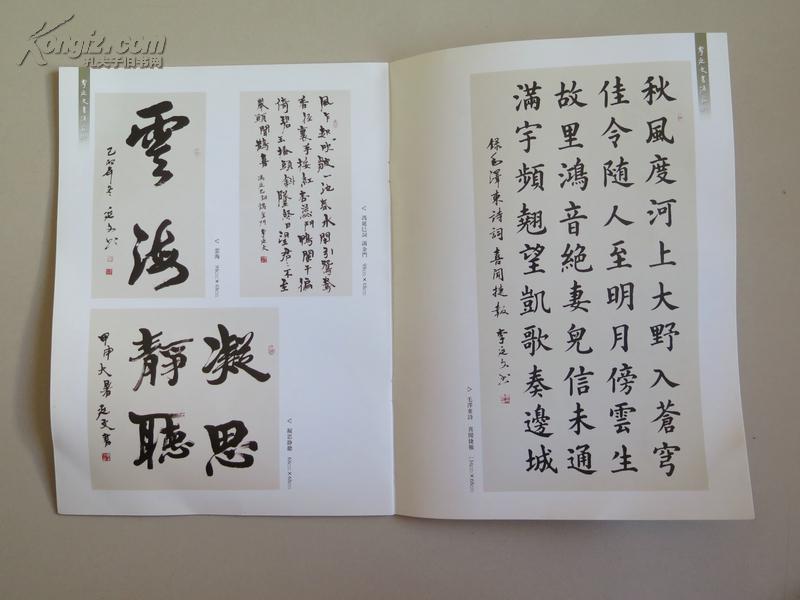 Kongfz.com
孔夫子旧书网
秋風度河上大野入蒼穹
佳令随人至明月傍雲生
故里鴻音絶妻兒信未通
滿宇頻翹望凱歌奏邊城
錄毛澤東詩詞喜聞捷報
李延文書
△ 毛澤東詩 喜聞捷報 134cm×68cm
風乍起吹皺一池春水閒引鴛鴦
香徑裏手挼紅杏蕊鬥鴨闌干徧
倚碧玉搔頭斜墜終日望君君不至
舉頭聞鵲喜
馮延巳詞謁金門 李延文
雲海
▽ 雲海 98cm×68cm
凝思
靜聽
甲申大暑延文書
▽ 凝思静聽 68cm×68cm